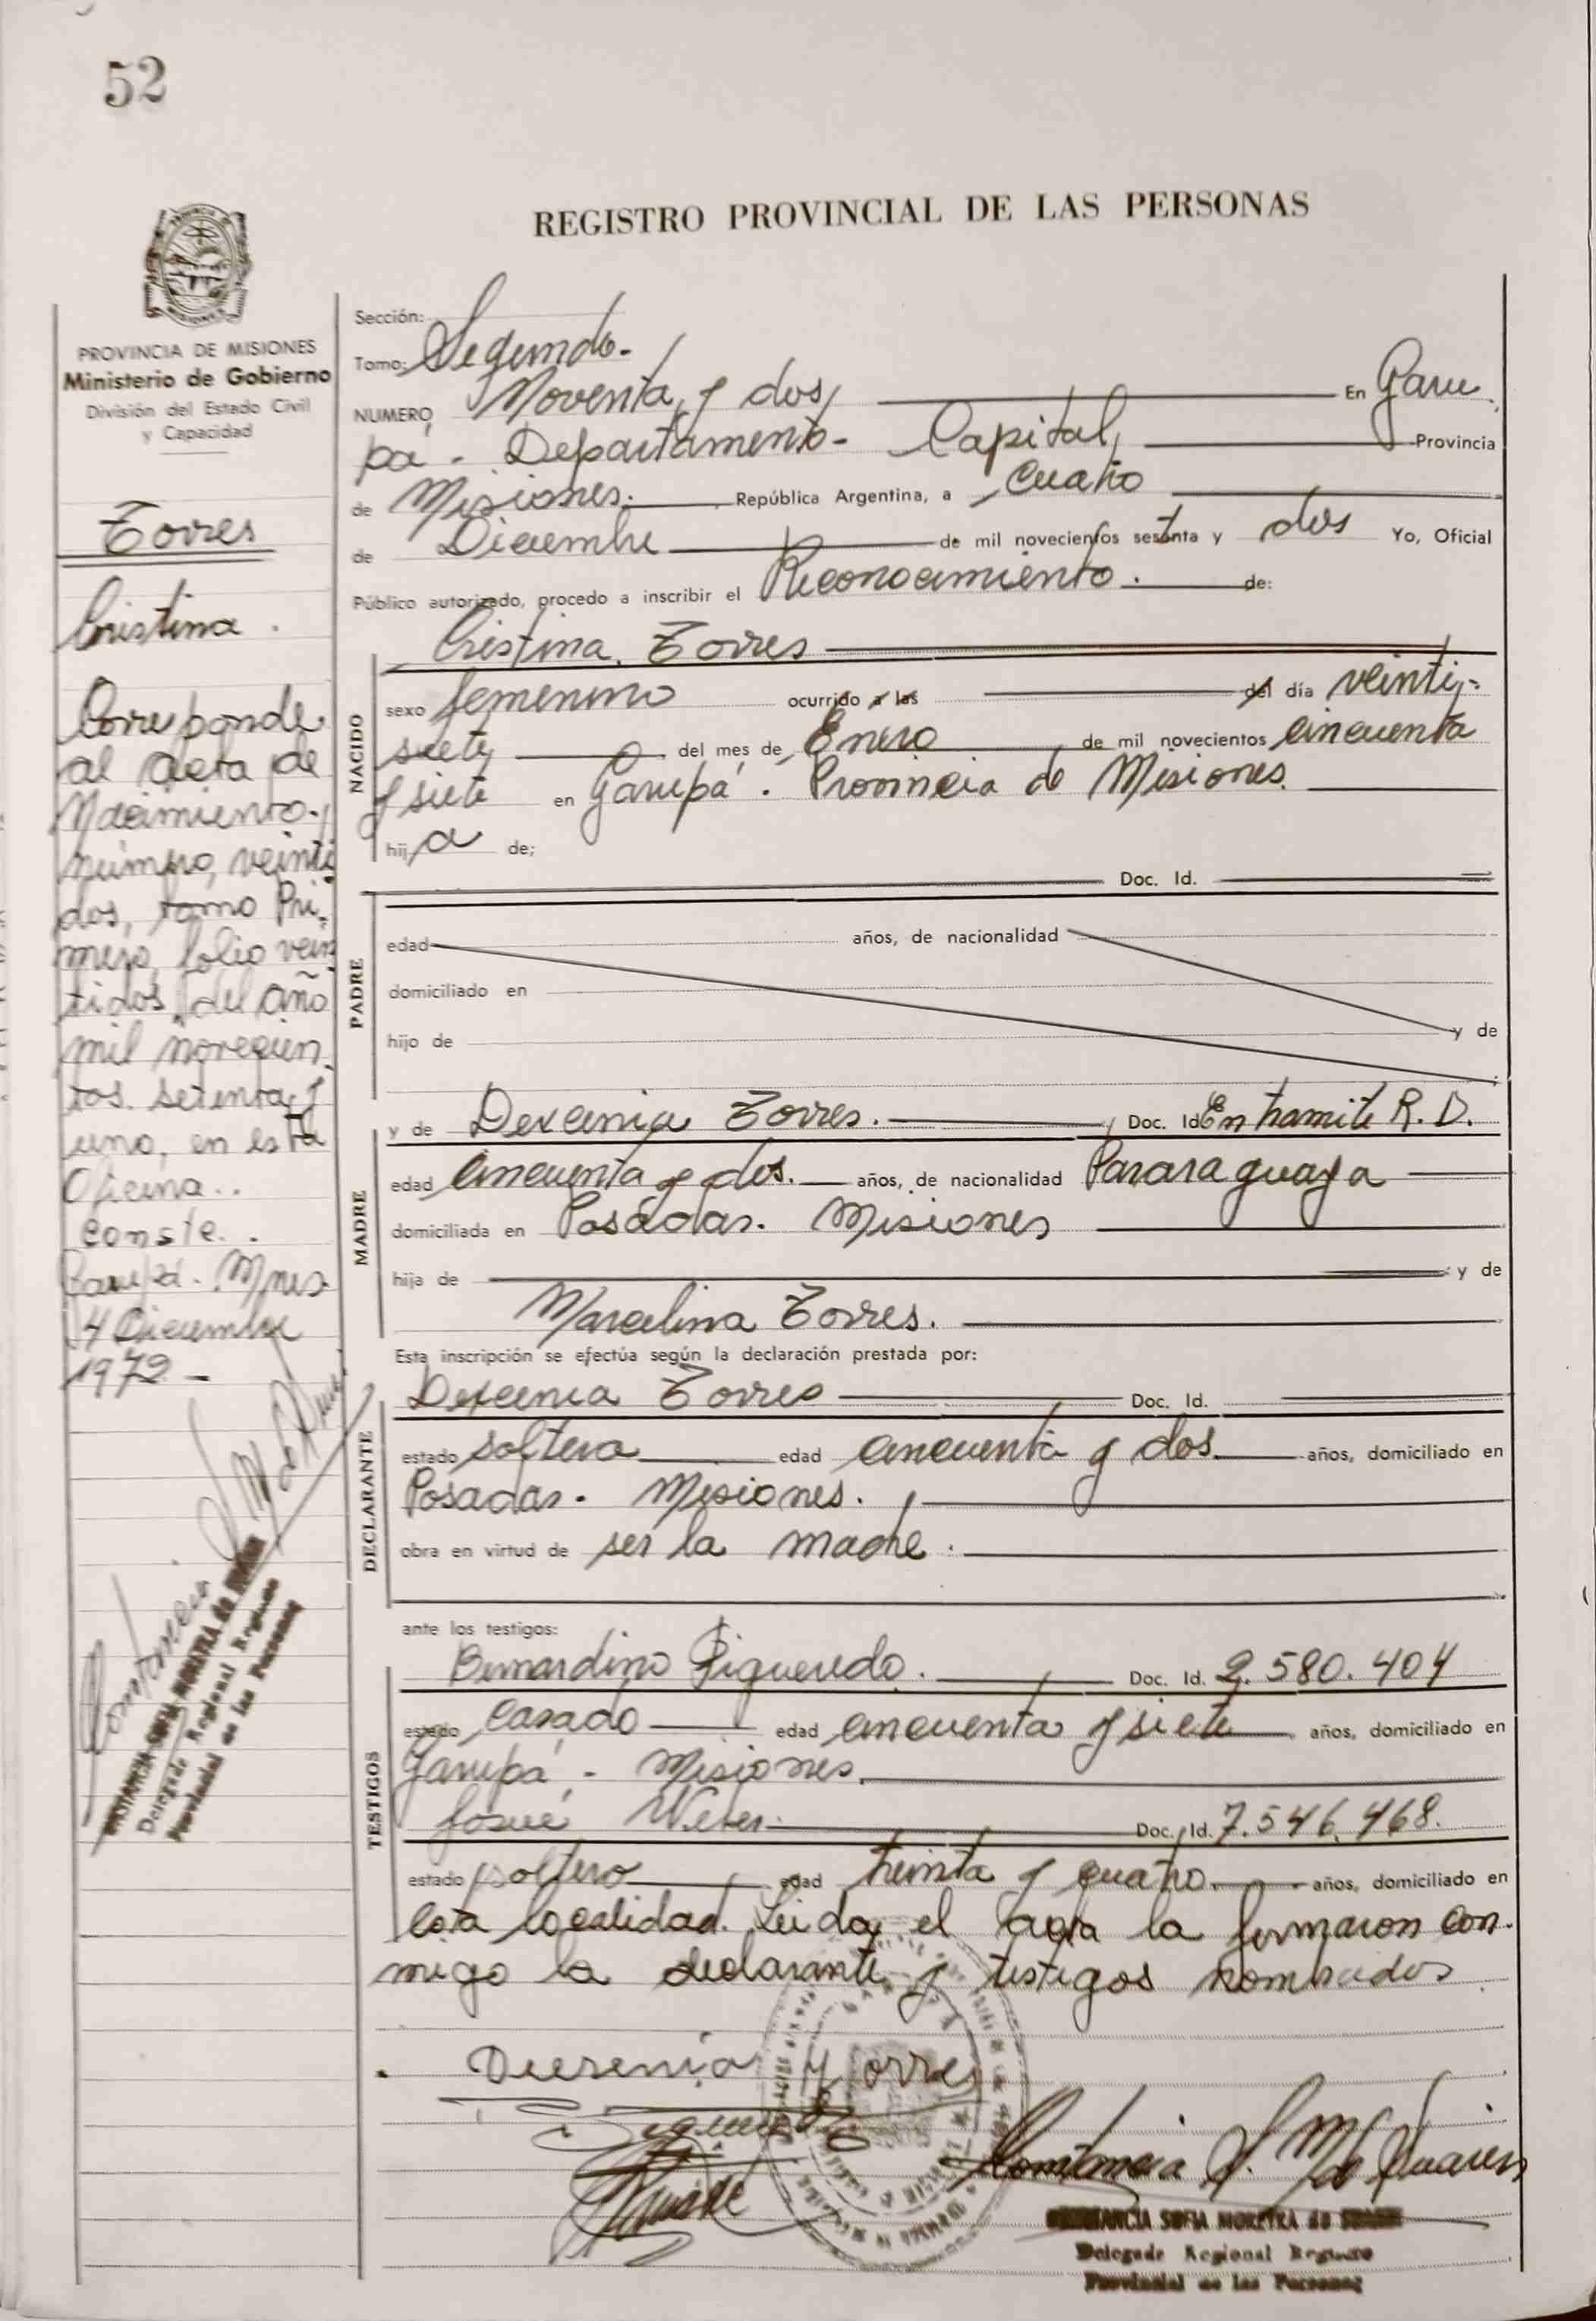 52
REGISTRO PROVINCIAL DE LAS PERSONAS
PROVINCIA DE MISIONES
Ministerio de Gobierno
División del Estado Civil
y Capacidad
Torres
Cristina.
Corresponde
al Acta de
Nacimiento.
número, veinti
dos, tomo Pri-
mero, folio vein
tidos, del año
mil novecien
tos. setenta y
uno, en esta
Oficina..
Conste.
Garupá. Mnes
4 Diciembre
1972 -
Constancia
Delegada Regional Registro
Provincial de las Personas
Sección:
Tomo: Segundo.
NUMERO Noventa, y dos, En Garu
pá - Departamento - Capital, Provincia
de Misiones. República Argentina, a Cuatro
de Diciembre de mil novecientos setenta y dos Yo, Oficial
Público autorizado, procedo a inscribir el Reconocimiento. de:
Cristina Torres
NACIDO
sexo femenino ocurrido a las del día veinti-
siete del mes de Enero de mil novecientos cincuenta
y siete en Garupá. Provincia de Misiones.
hij a de;
PADRE
Doc. Id.
edad años, de nacionalidad
domiciliado en
hijo de y de
MADRE
y de Torres. Doc. Id En tramite R. D.
edad cincuenta y dos. años, de nacionalidad Pararaguaya
domiciliada en Posadas. Misiones
hija de y de
Marcelina Torres.
Esta inscripción se efectúa según la declaración prestada por:
DECLARANTE
Torres Doc. Id.
estado soltera edad cincuenta y dos. años, domiciliado en
Posadas. Misiones.
obra en virtud de ser la madre.
ante los testigos:
TESTIGOS
Bernardino Piqueredo. Doc. Id. 2.580.404
estado Casado edad cincuenta y siete años, domiciliado en
Garupá - Misiones.
Josué Weber. Doc. Id. 7.546.468.
estado soltero edad treinta y cuatro. años, domiciliado en
esta localidad. Leida el acta la firmaron con-
migo la declarante y testigos nombrados
Torres
Constancia S. M. de
SOFIA MOREYRA de
Delegada Regional Registro
Provincial de las Personas